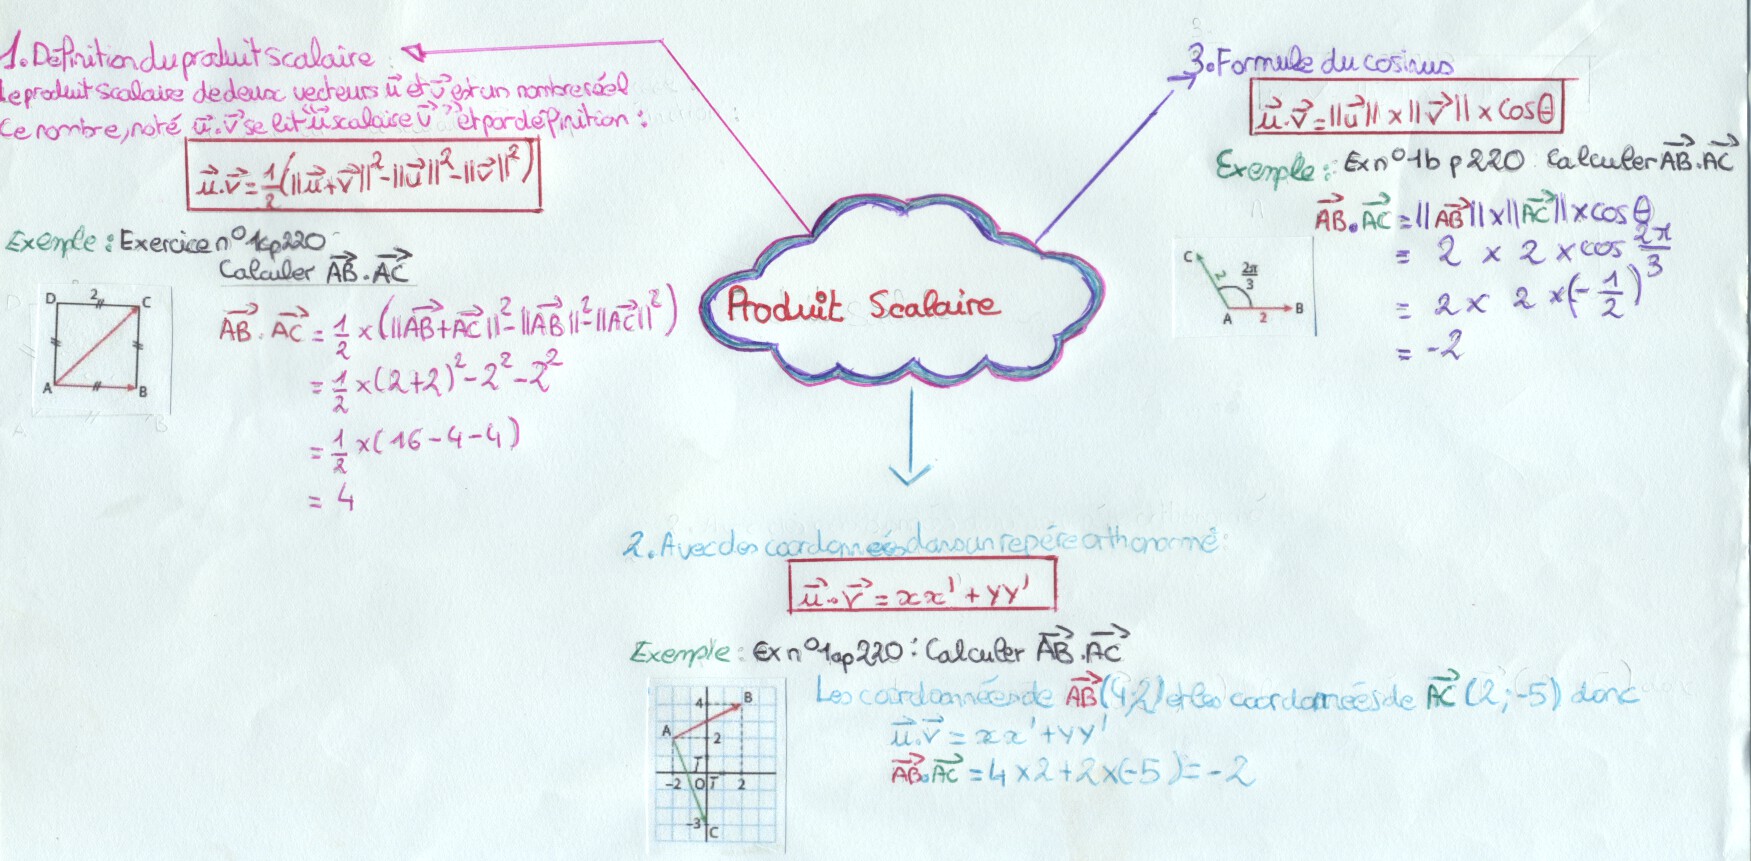 1. Définition du produit scalaire :
Le produit scalaire de deux vecteurs u⃗ et v⃗ est un nombre réel
Ce nombre, noté u⃗.v⃗ se lit "u⃗ scalaire v⃗" et par définition :
u⃗.v⃗ = 1/2 (||u⃗+v⃗||² - ||u⃗||² - ||v⃗||²)
Exemple : Exercice n°1cp220
Calculer AB⃗.AC⃗
D 2 C
A B
AB⃗.AC⃗ = 1/2 × (||AB⃗+AC⃗||² - ||AB⃗||² - ||AC⃗||²)
= 1/2 × (2+2)² - 2² - 2²
= 1/2 × (16 - 4 - 4)
= 4
Produit Scalaire
3. Formule du cosinus
u⃗.v⃗ = ||u⃗|| × ||v⃗|| × cosθ
Exemple : Ex n°1b p220 Calculer AB⃗.AC⃗
AB⃗.AC⃗ = ||AB⃗|| × ||AC⃗|| × cosθ
= 2 × 2 × cos 2π/3
= 2 × 2 × (-1/2)
= -2
C
2 2π/3
A 2 B
2. Avec des coordonnées dans un repére orthonormé :
u⃗.v⃗ = xx' + yy'
Exemple : Ex n°1ap220 : Calculer AB⃗.AC⃗
Les coordonnées de AB⃗ (4;2) et les coordonnées de AC⃗ (2;-5) donc
u⃗.v⃗ = xx' + yy'
AB⃗.AC⃗ = 4×2+2×(-5) = -2
4 B
A 2
-2 0 2
-3 C